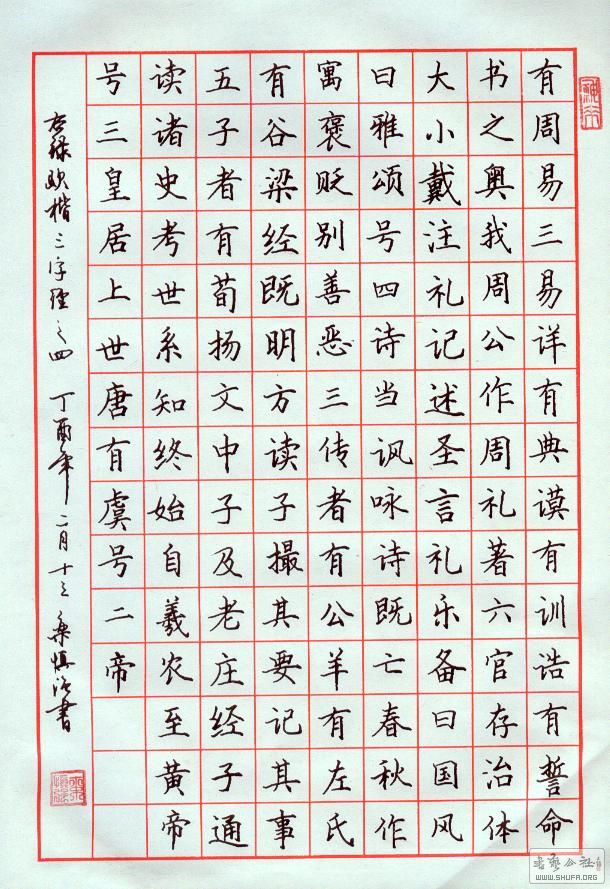 有周易三易详有典谟有训诰有誓命
书之奥我周公作周礼著六官存治体
大小戴注礼记述圣言礼乐备曰国风
曰雅颂号四诗当讽咏诗既亡春秋作
寓褒贬别善恶三传者有公羊有左氏
有谷梁经既明方读子撮其要记其事
五子者有荀扬文中子及老庄经子通
读诸史考世系知终始自羲农至黄帝
号三皇居上世唐有虞号二帝
右录欧楷三字经之四 丁酉年二月十三 书
书艺公社
WWW.SHUFA.ORG